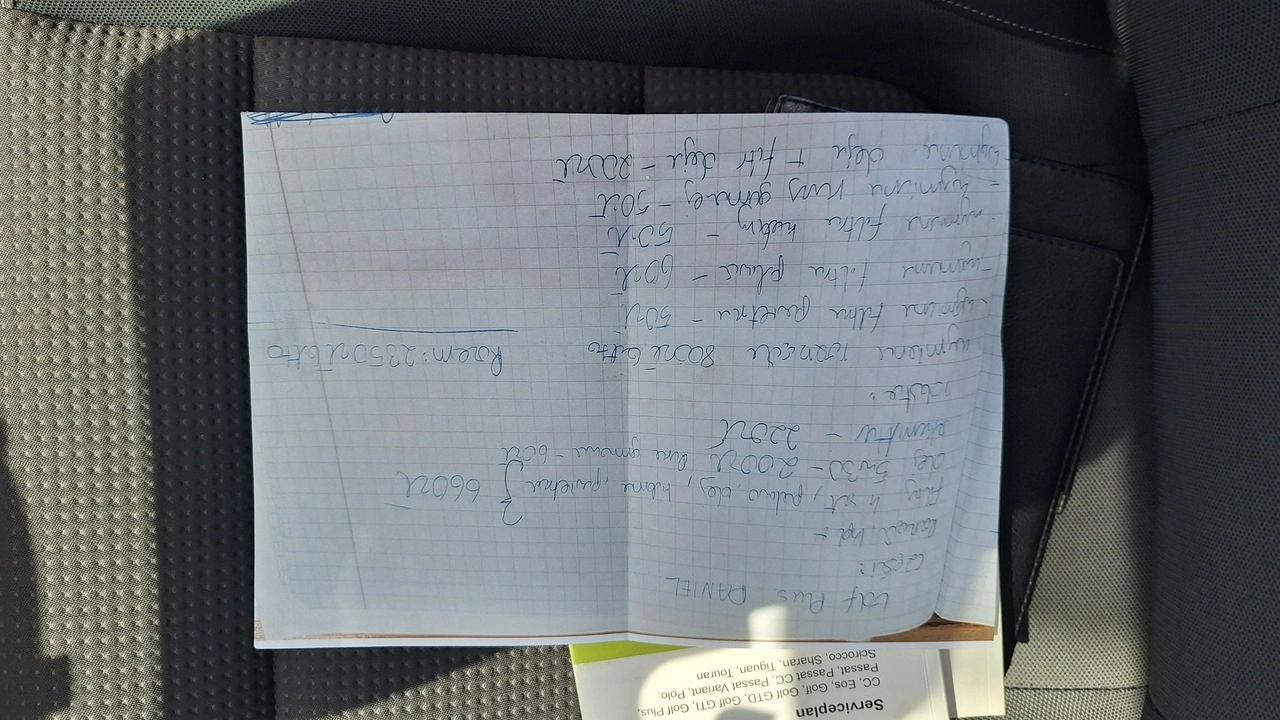 Golf Plus DANIEL
części:
rozrząd kpl -
filtry 4 szt, paliwo, olej, kabina, powietrza } 660zł
olej 5w30 - 200zł kuna gumowa - 60zł
- 220zł
robota:
wymiana rozrządu 800zł brutto Razem: 2350zł brutto
- wymiana filtra powietrza - 50zł
- wymiana filtra paliwa - 60zł
- wymiana filtra kabiny - 50zł
- wymiana kuny gumowej - 50zł
- wymiana oleju + filtr oleju - 200zł
Serviceplan
CC, Eos, Golf, Golf GTD, Golf GTI, Golf Plus,
Passat, Passat CC, Passat Variant, Polo,
Scirocco, Sharan, Tiguan, Touran